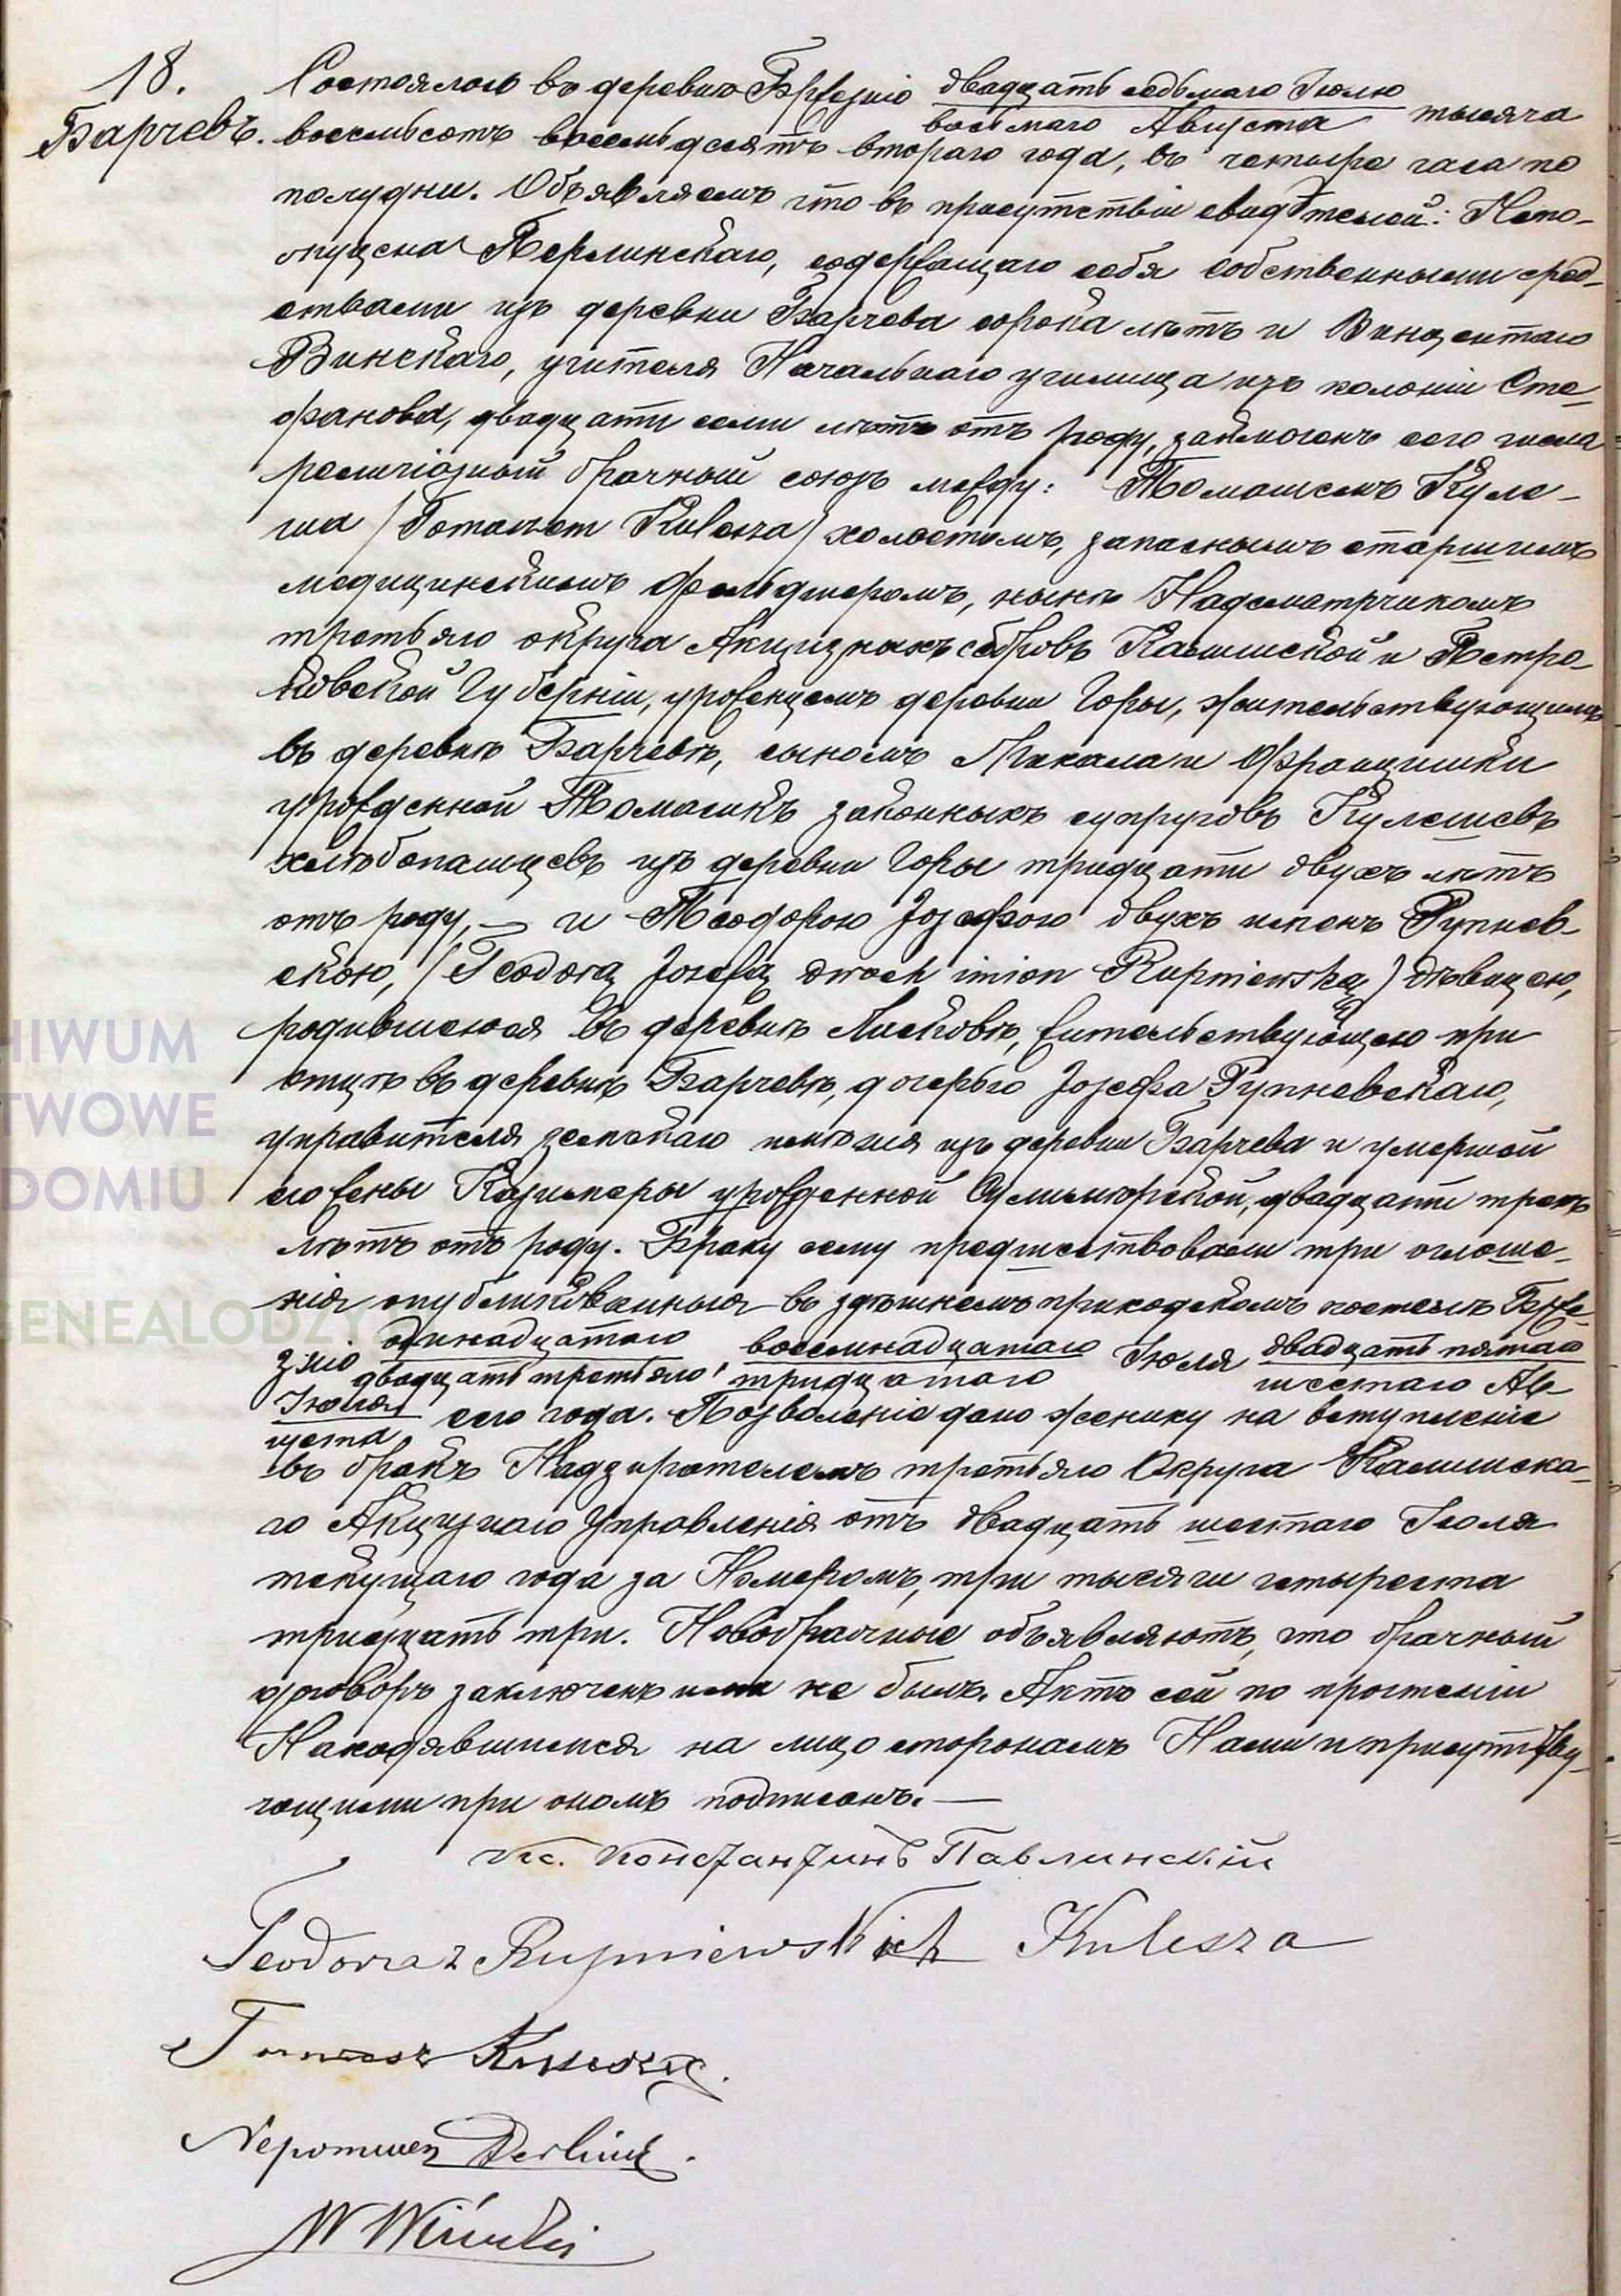 18.
Барчевъ.
Состоялось въ деревнѣ Бржезніо двадцать седьмаго Іюля
восьмаго Августа тысяча
восемьсотъ восемьдесятъ втораго года, въ четыре часа по
полудни. Объявляемъ что въ присутствіи свидѣтелей: Непо-
муцена Перлинскаго, содержащаго себя собственными сред-
ствами изъ деревни Барчева сорока лѣтъ и Винцентаго
Винскаго, учителя Начальнаго училища изъ колоніи Сте-
фанова, двадцати семи лѣтъ отъ роду, заключенъ сего числа
религіозный брачный союзъ между: Томашемъ Куле-
ша (Tomaszem Kulesza) холостымъ, запаснымъ старшимъ
медицинскимъ фельдшеромъ, нынѣ Надсмотрщикомъ
третьяго округа Акцизныхъ сборовъ Калишской и Петро-
ковской Губерніи, уроженцемъ деревни Горы, жительствующимъ
въ деревнѣ Барчевѣ, сыномъ Михала и Францишки
урожденной Томасикъ законныхъ супруговъ Кулешовъ
хлѣбопашцевъ изъ деревни Горы тридцати двухъ лѣтъ
отъ роду, — и Теодорою Іозефою двухъ именъ Рупнев-
скою, (Teodorą Jozefą dwoch imion Rupniewską) дѣвицею,
родившеюся въ деревнѣ Лисковѣ, жительствующею при
отцѣ въ деревнѣ Барчевѣ, дочерью Іозефа Рупневскаго,
управителя земскаго имѣнія изъ деревни Барчева и умершой
его жены Казимеры урожденной двадцати трехъ
лѣтъ отъ роду. Браку сему предшествовали три оглаше-
нія опубликованныя въ здѣшнемъ приходскомъ костелѣ Брже-
зніо одинадцатаго восемнадцатаго Іюля двадцать пятаго
двадцать третьяго, тридцатаго шестаго Ав-
Іюля сего года. Позволеніе дано женику на вступленіе
густа
въ бракъ Надзирателемъ третьяго Округа Калишска-
го Акцизнаго Управленія отъ двадцать шестаго Іюля
текущаго года за Номеромъ, три тысячи четыреста
тридцать три. Новобрачные объявляютъ, что брачный
договоръ заключенъ ими не былъ. Актъ сей по прочтеніи
Находявшимся на лицо сторонамъ Нами и присутству-
ющими при ономъ подписанъ. —
Кс. Константинъ Павлинскій
Teodora z Rupniewskich Kulesza
Tomasz Kulesza.
Nepomucen Perliński.
W Wiński
HIWUM
TWOWE
DOMIU
GENEALODZY